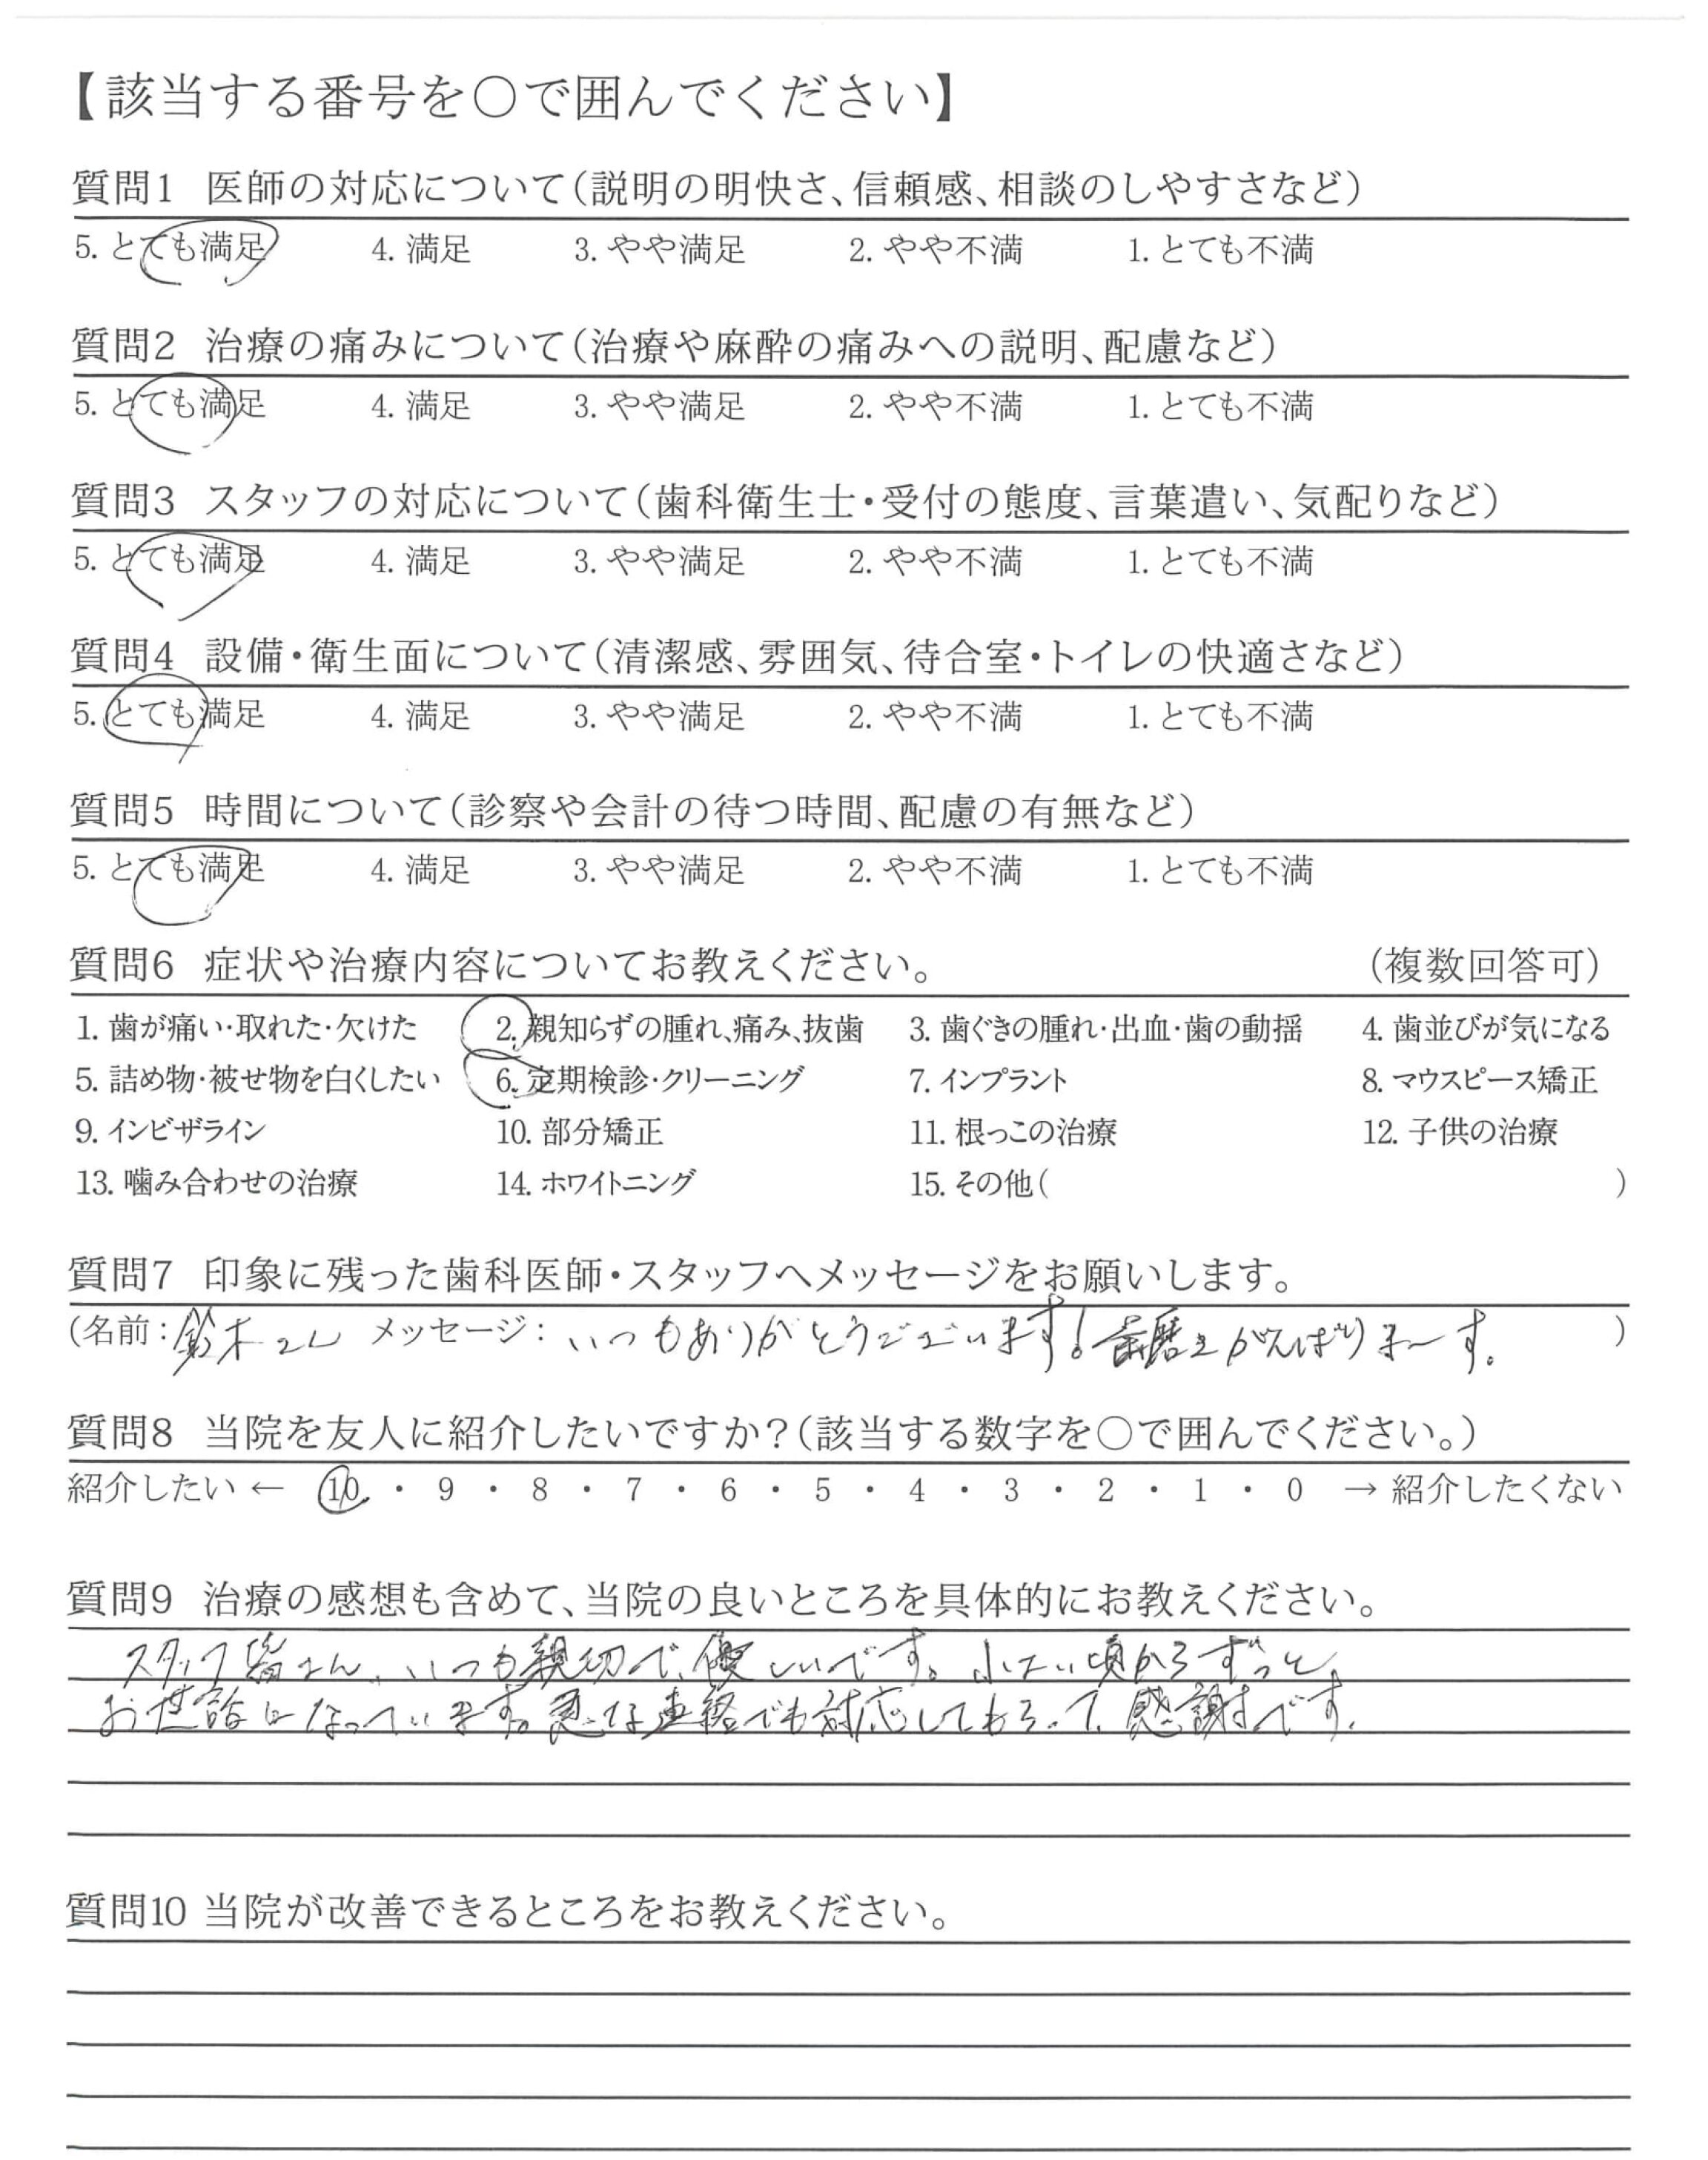 【該当する番号を○で囲んでください】
質問1 医師の対応について（説明の明快さ、信頼感、相談のしやすさなど）
5. とても満足 4. 満足 3. やや満足 2. やや不満 1. とても不満
質問2 治療の痛みについて（治療や麻酔の痛みへの説明、配慮など）
5. とても満足 4. 満足 3. やや満足 2. やや不満 1. とても不満
質問3 スタッフの対応について（歯科衛生士・受付の態度、言葉遣い、気配りなど）
5. とても満足 4. 満足 3. やや満足 2. やや不満 1. とても不満
質問4 設備・衛生面について（清潔感、雰囲気、待合室・トイレの快適さなど）
5. とても満足 4. 満足 3. やや満足 2. やや不満 1. とても不満
質問5 時間について（診察や会計の待つ時間、配慮の有無など）
5. とても満足 4. 満足 3. やや満足 2. やや不満 1. とても不満
質問6 症状や治療内容についてお教えください。 （複数回答可）
1. 歯が痛い・取れた・欠けた 2. 親知らずの腫れ、痛み、抜歯 3. 歯ぐきの腫れ・出血・歯の動揺 4. 歯並びが気になる
5. 詰め物・被せ物を白くしたい 6. 定期検診・クリーニング 7. インプラント 8. マウスピース矯正
9. インビザライン 10. 部分矯正 11. 根っこの治療 12. 子供の治療
13. 噛み合わせの治療 14. ホワイトニング 15. その他（ ）
質問7 印象に残った歯科医師・スタッフへメッセージをお願いします。
（名前：鈴木さん メッセージ：いつもありがとうございます！歯磨きがんばりまーす。 ）
質問8 当院を友人に紹介したいですか？（該当する数字を○で囲んでください。）
紹介したい ← 10 ・ 9 ・ 8 ・ 7 ・ 6 ・ 5 ・ 4 ・ 3 ・ 2 ・ 1 ・ 0 → 紹介したくない
質問9 治療の感想も含めて、当院の良いところを具体的にお教えください。
スタッフ皆さん、いつも親切で、優しいです。小さい頃からずっと
お世話になっています。急な連絡でも対応してもらって、感謝です。
質問10 当院が改善できるところをお教えください。